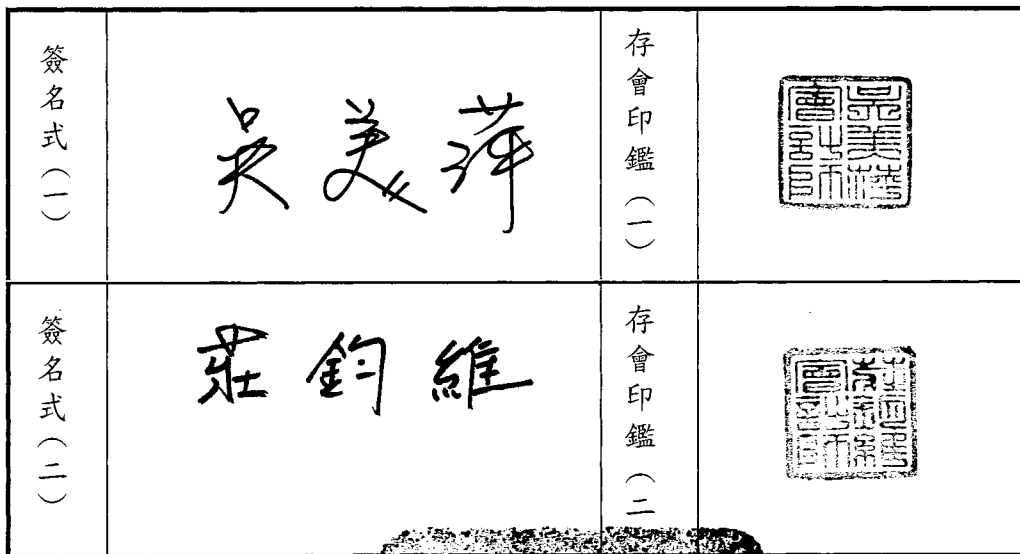 簽名式（一）
吳美萍
存會印鑑（一）
吳美萍會計師
簽名式（二）
莊鈞維
存會印鑑（二
莊鈞維會計師